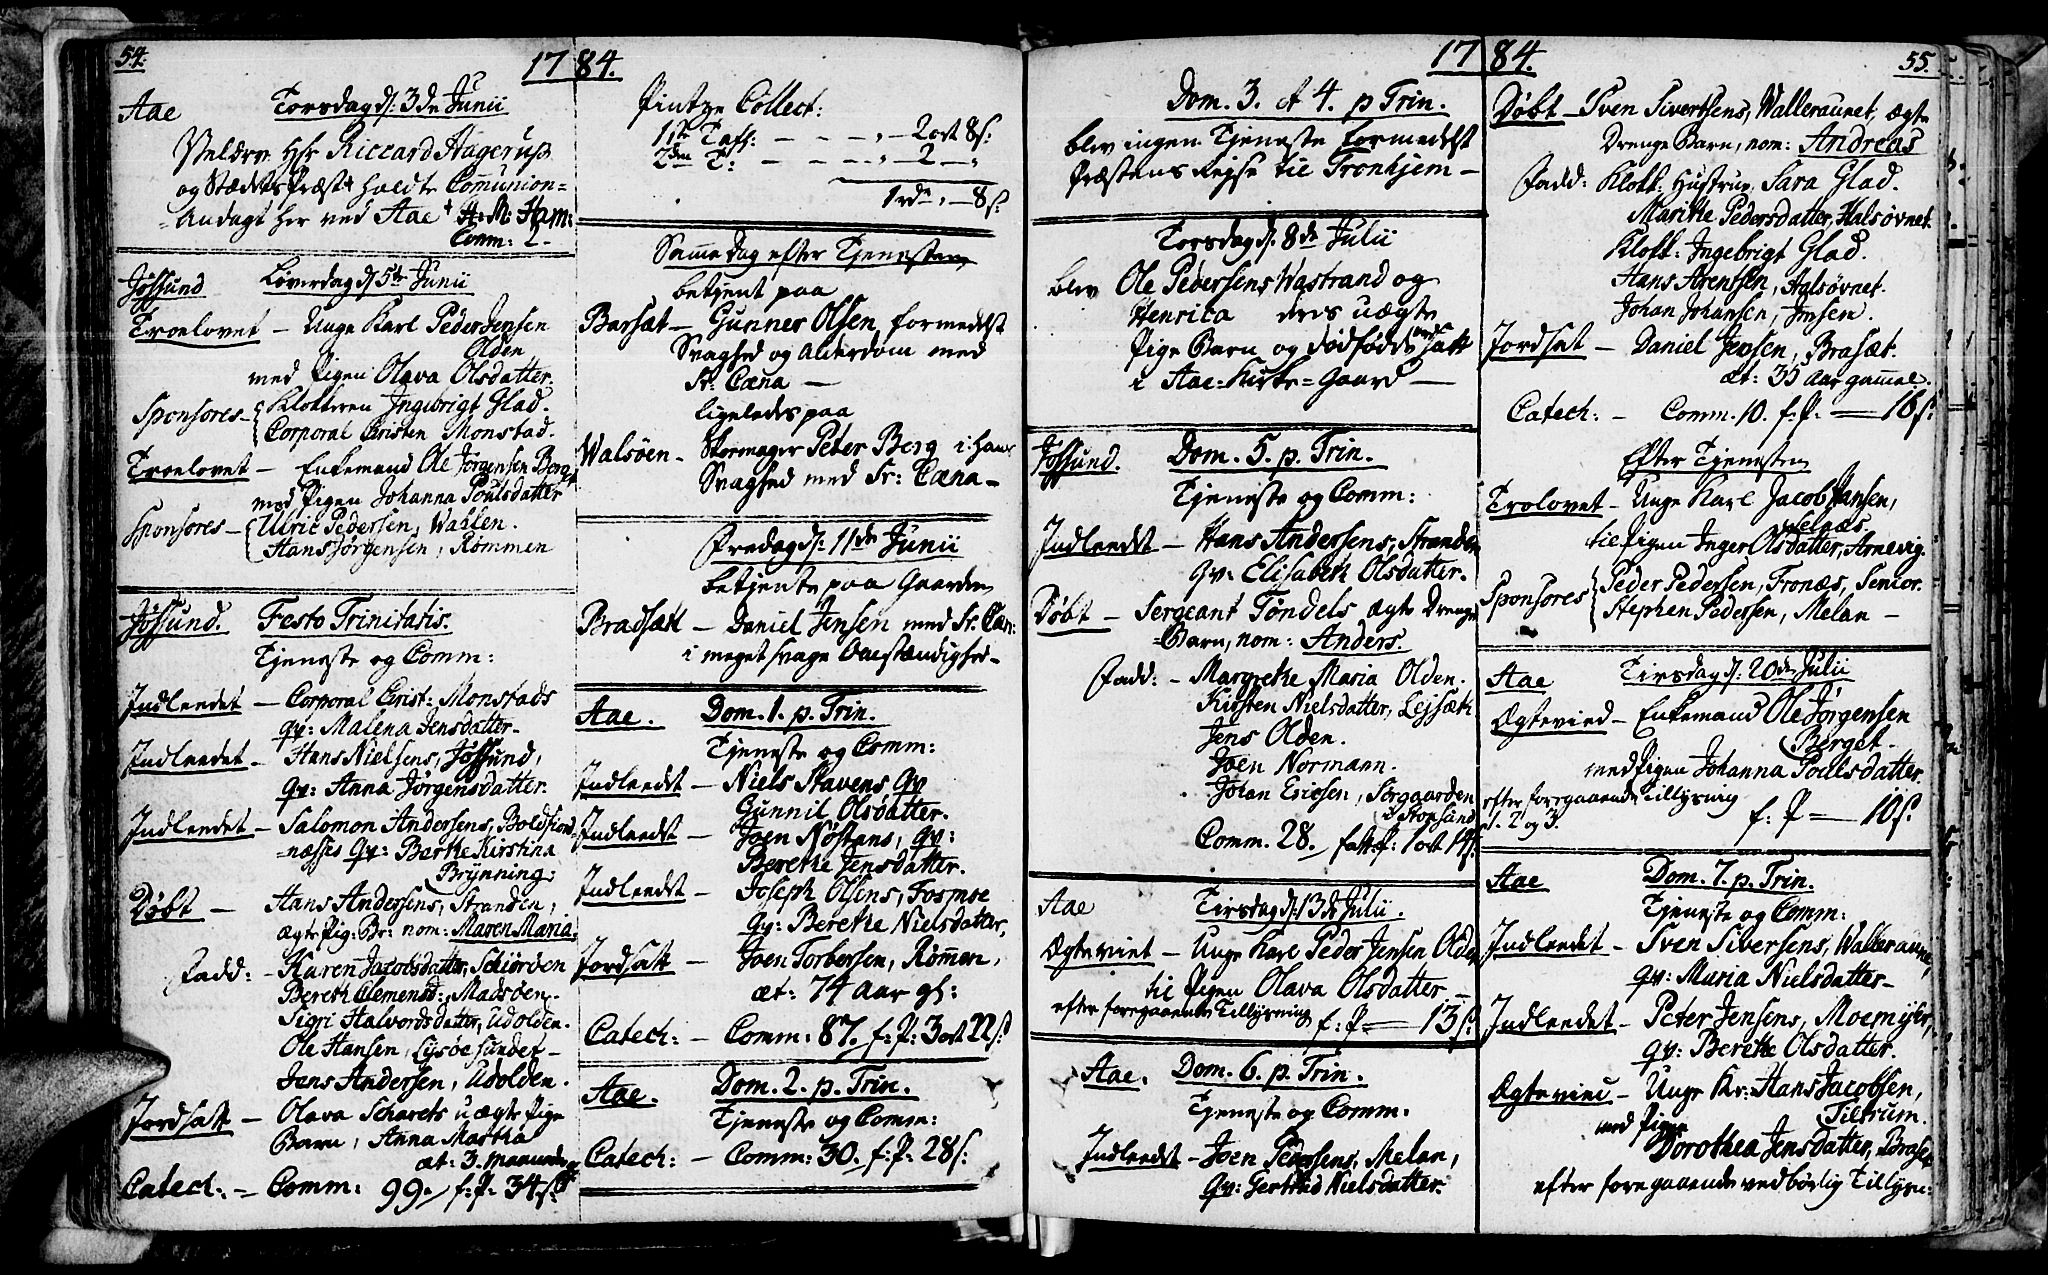 54.
1784.
Aae
Torsdag d: 3de Junii
Velærv. Hr Riccard Hagerups
og Stædets Præst holdte Communion=
=Andagt her ved Aae H: M: Ham:
Comm: 2-
Jøssund
Løverdag d: 5te Junii
Troelovet - Unge Karl Peder Jensen
Olden
med Pigen Olava Olsdatter.
Sponsores - Klokkeren Ingebrigt Glad.
Corporal Christen Monstad.
Troelovet - Enkemand Ole Jørgensen Berg
med Pigen Johanna Poulsdatter
Sponsores - Ulric Pedersen, Wahlen.
Hans Jørgensen, Rømmen
Jøssund.
Festo Trinitatis.
Tjeneste og Comm:
Indleedet - Corporal Christ: Monstads
qv: Malena Jensdatter-
Indleedet - Hans Nielsens, Jøssund,
qv: Anna Jørgensdatter.
Indleedet - Salomon Andersens, Boldfiord=
=næsses qv: Berthe Kirstina
Brynning:
Døbt - Hans Andersens, Stranden,
ægte Pig: Br: nom: Maren Maria.
Fadd: - Karen Jacobsdatter, Schiørøen
Bereth Clemensd: Madsøen.
Sigri Halvordsdatter, Udolden.
Ole Hansen, Lysøesundet -
Jens Andersen, Udolden.
Jordsatt - Olava Scharets uægte Pige
Barn, Anna Martha
æt: 3. Maaneder
Catech: - Comm: 99. f: P: 34 s:
Pintze Collect:
1ste Tafl: - - - " - 2 ort 8 s:
2den T: - - - " - 2 - "
1 rdr " - 8 s:
Samme Dag efter Tjenesten
betjent paa
Barsæt - Gunner Olsen formedelst
Svaghed og Alderdom med
Sr: Cæna -
Ligeledes paa
Walsøen - Skovmager Peter Berg i hans
Svaghed med Sr: Cæna -
Fredag d: 11de Junii
betjente paa Gaarden
Bradsæt - Daniel Jensen med Sr. Cæn:
i meget svage Omstændighed -
Aae.
Dom. 1. p. Trin.
Tjeneste og Comm:
Indleedt - Niels Stavens qv
Gunnil Olsdatter.
Indleedt - Joen Nøstens, qv:
Berethe Jensdatter.
Indleedt - Joseph Olsens, Fosmoe
qv: Berethe Nielsdatter,
Jordsatt - Joen Torbersen, Rømen,
æt: 74 Aar gl:
Catech: - Comm: 87. f: P: 3 ort 22 s:
Aae.
Dom. 2. p. Trin.
Tjeneste og Comm:
Catech: - Comm: 30. f: P: 28 s:
1784.
55.
Dom. 3. et 4. p Trin.
blev ingen Tjeneste formedelst
Præstens Rejse til Tronhjem -
Torsdag d: 8de Julii
blev Ole Pedersens Wastrand og
Henrica deres uægte
Pige Barn og dødfødde nedsatt
i Aae=Kirke=Gaard -
Jøssund.
Dom. 5. p. Trin.
Tjeneste og Comm:
Indleedt - Hans Andersens, Stranden
qv: Elisabeth Olsdatter.
Døbt - Sergeant Tøndels ægte Drenge
=Barn, nom: Anders.
Fadd: - Margrethe Maria Olden.
Kirsten Nielsdatter, Lejsæth
Jens Olden.
Joen Normann.
Johan Ericsen, Sørgaarden
i Stoksund
Comm. 28. fatt. f: 1 ort 14 s:
Aae
Tirsdag d: 13de Julii.
Ægteviet - Unge Karl Peder Jensen Olden
til Pigen Olava Olsdatter -
efter foregaaende Tillysning f: P - 13 s:
Aae.
Dom. 6. p. Trin.
Tjeneste og Comm.
Indleedet - Joen Pedersens, Melan,
qv: Gertrud Nielsdatter.
Døbt - Sven Sivertsens, Walleraunet, ægte
Drenge Barn, nom: Andreas
Fadd: Klokk: Hustrue Sara Glad.
Marithe Pedersdatter, Halsøvnet.
Klokk: Ingebrigt Glad.
Hans Arentsen, Halsøvnet.
Johan Johansen, Imsen.
Jordsat - Daniel Jensen, Brasæt.
æt: 35 Aar gamel.
Catech: - Comm. 10. f. P. - 16 s:
Efter Tjenesten
Trolovet - Unge Karl Jacob Jansen,
Selnæs.
til Pigen Inger Olsdatter, Arnevig.
Sponsores Peder Pedersen, Fronæs, Senior.
Stephen Pedersen, Melan -
Aae
Tirsdag d: 20de Julii
Ægtevied - Enkemand Ole Jørgensen
Berget.
med Pigen Johanna Poulsdatter.
efter foregaaende Tillysning
1. 2 og 3. f: P - 10 s.
Aae
Dom. 7. p. Trin.
Tjeneste og Comm:
Indleedet - Sven Siversens, Walleraune,
qv: Maria Nielsdatter -
Indleedet - Peter Jensens, Moemyhr,
qv: Berethe Olsdatter.
Ægtevieu - Unge Kr: Hans Jacobsen,
Tiltrum.
med Pigen
Dorothea Jensdatter, Brasæt
efter foregaaende vedbørlig Tillysn: